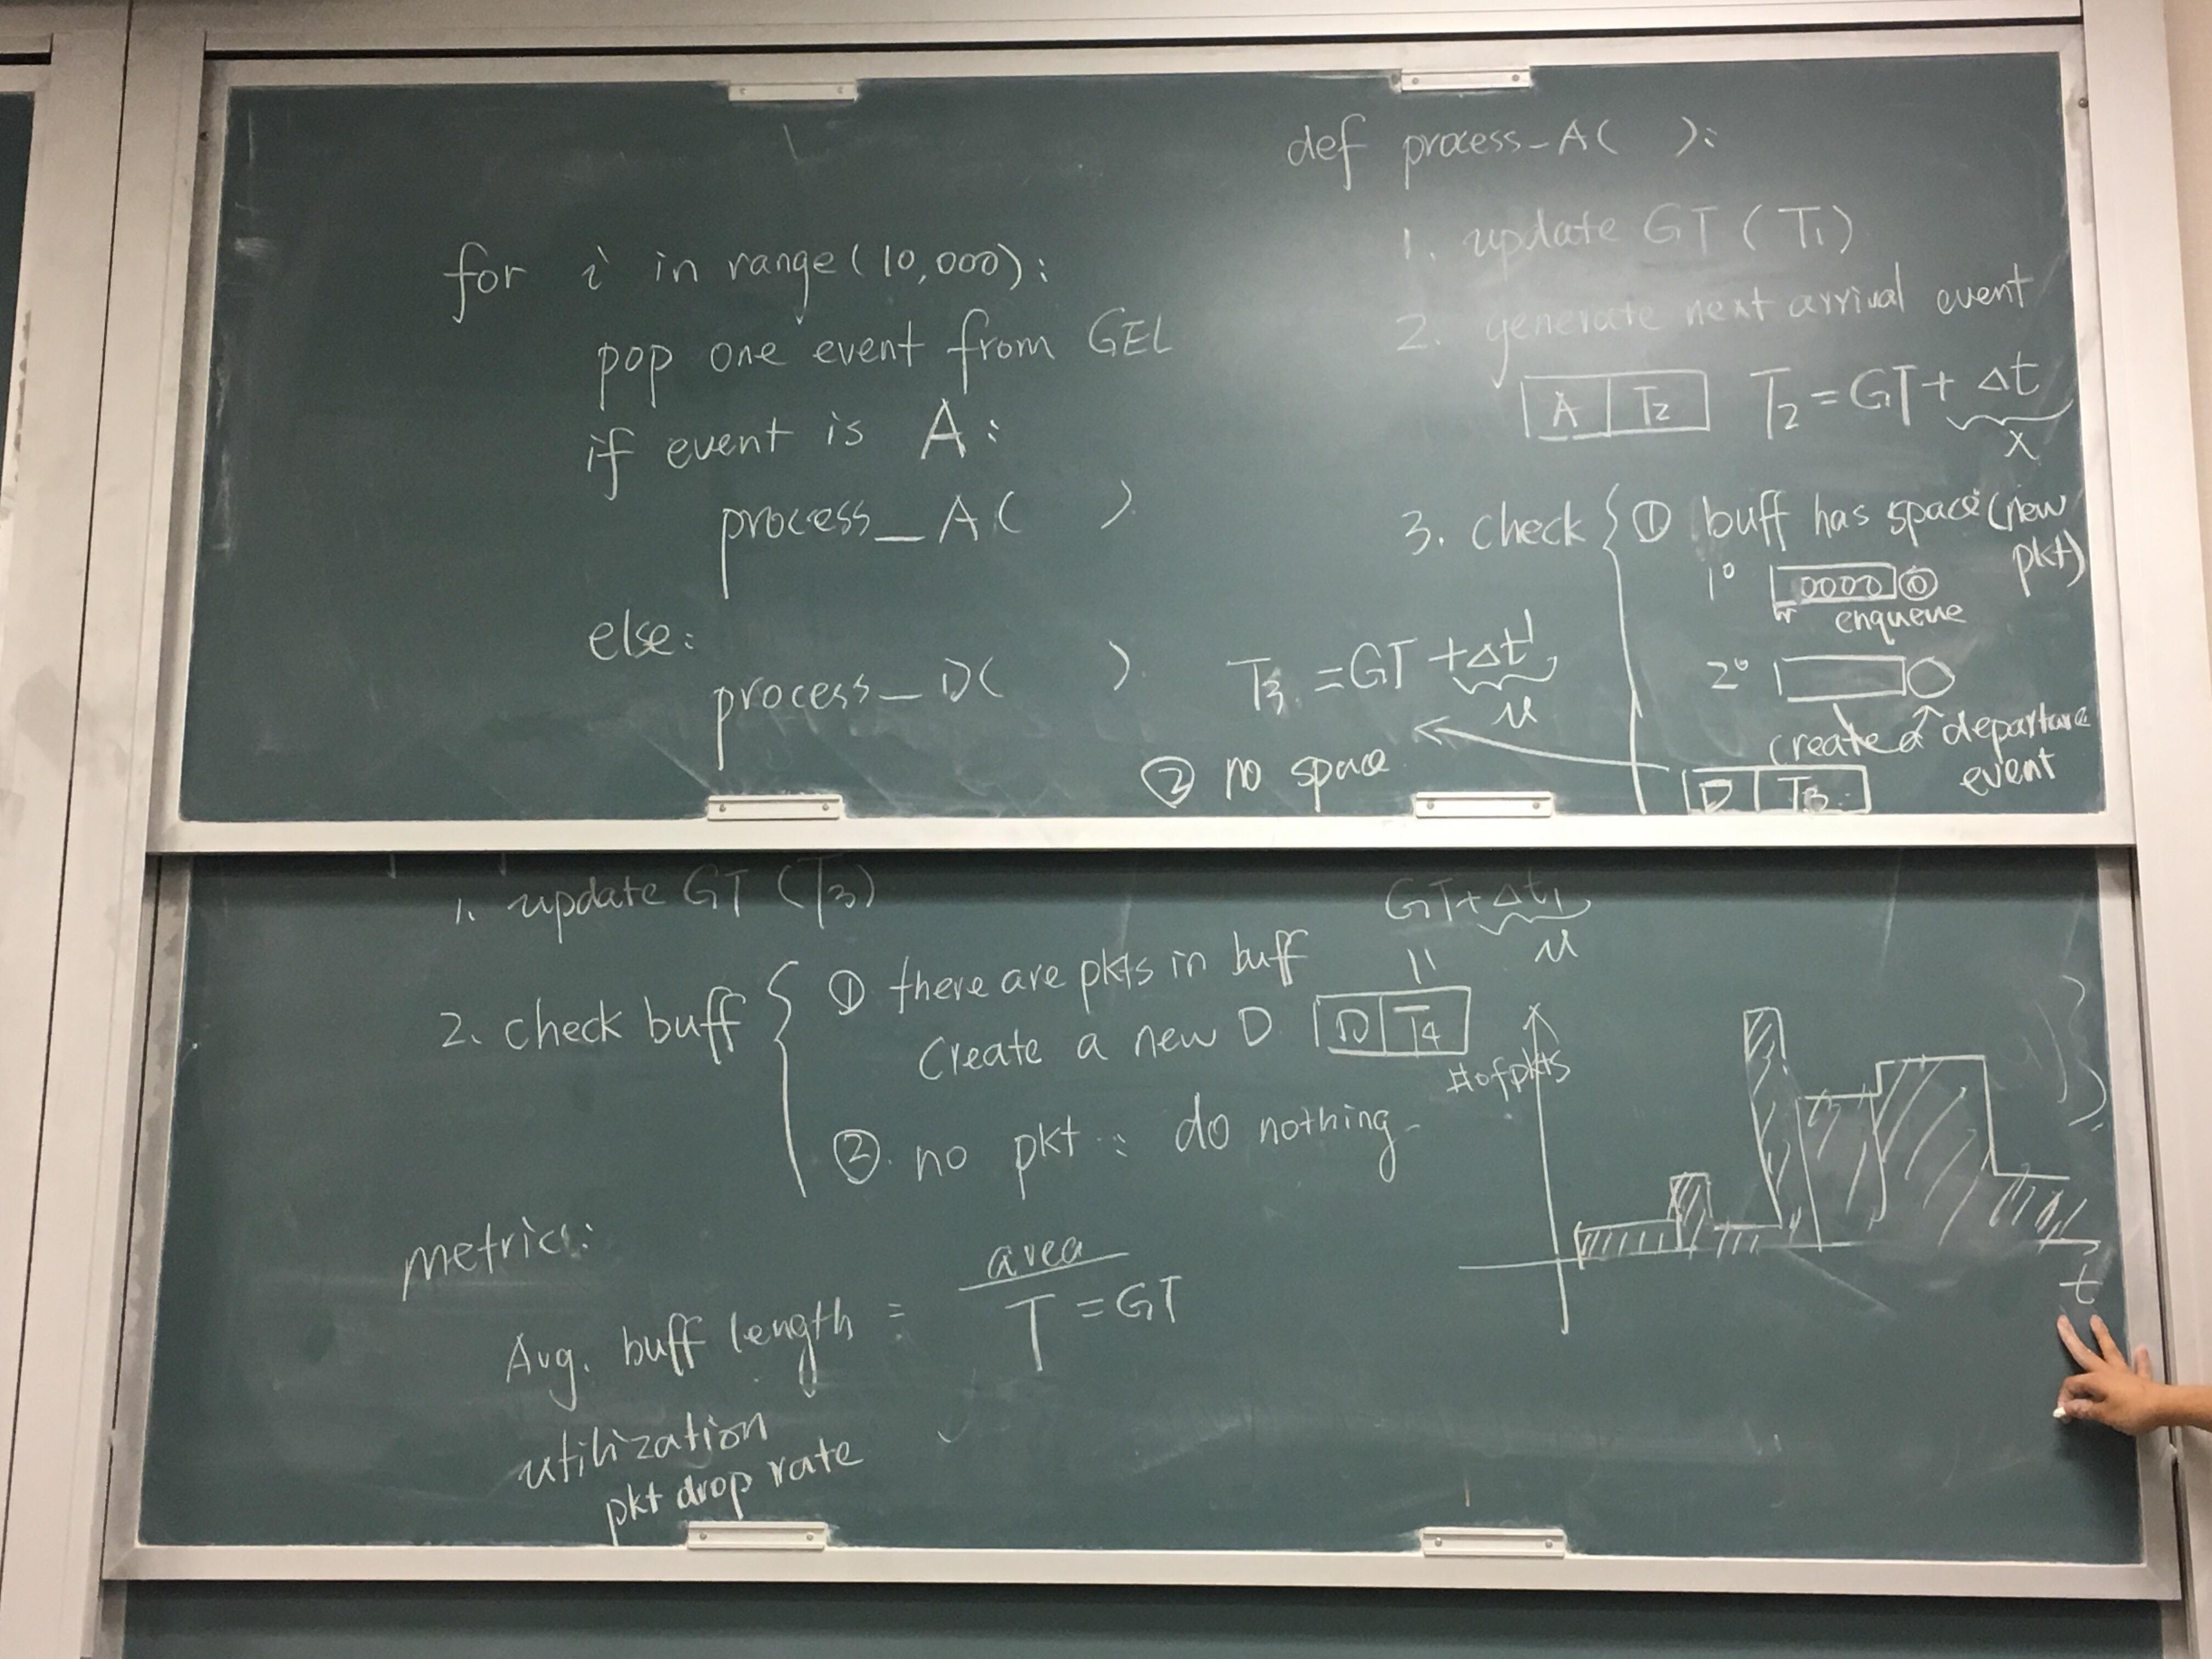 for i in range(10,000):
pop one event from GEL
if event is A:
process_A( )
else:
process_D( )
def process_A( ):
1. update GT (T1)
2. generate next arrival event
A T2 T2 = GT + Δt
λ
3. check ① buff has space (new pkt)
1° 0000 0
enqueue
2°
create a departure event
D T3
T3 = GT + Δt'
μ
② no space
1. update GT (T3)
2. check buff ① there are pkts in buff
Create a new D D T4
=
GT + Δt1
μ
② no pkt : do nothing.
metrics:
Avg. buff length = area
T = GT
utilization
pkt drop rate
# of pkts
t